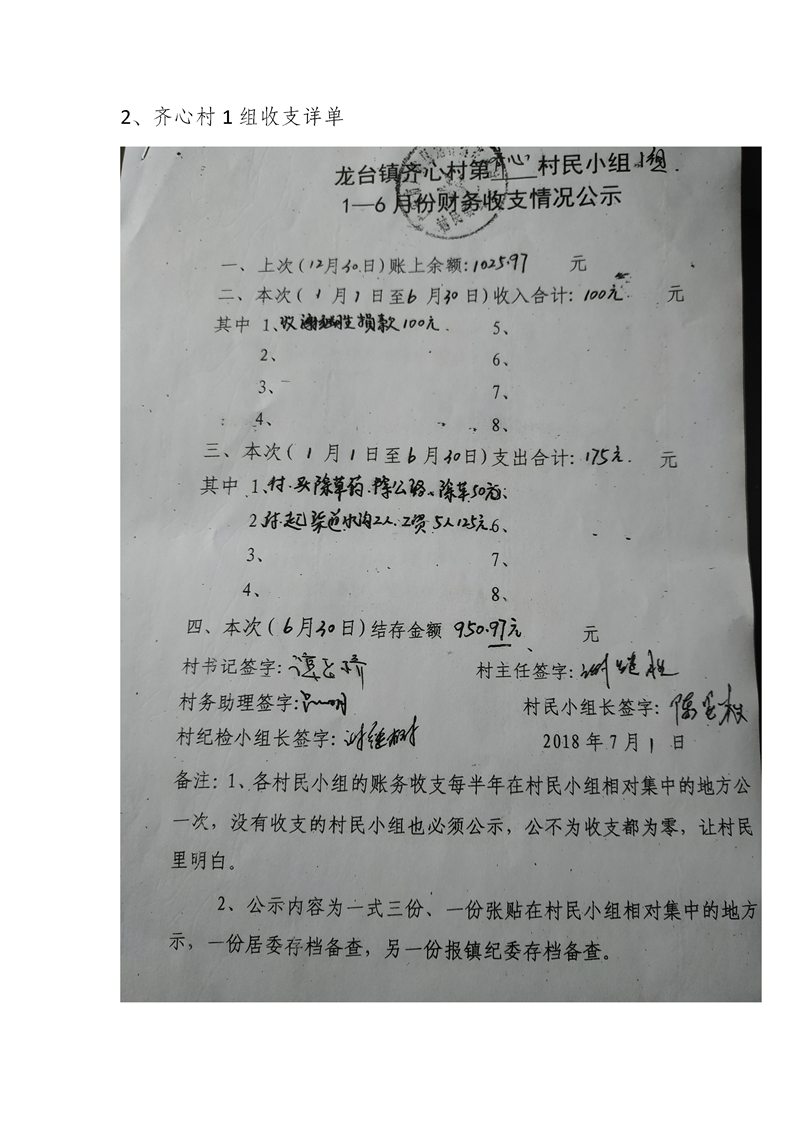 2、齐心村1组收支详单
龙台镇齐心村第齐心村民小组小组.
1—6月份财务收支情况公示
一、上次(12月30日)账上余额:1025.97 元
二、本次(1月1日至6月30日)收入合计:100元. 元
其中 1、收 损款100元. 5、
2、 6、
3、 7、
4、 8、
三、本次(1月1日至6月30日)支出合计:175元. 元
其中 1、付.买除草药.除公路、除草50元;
2 付.起渠道水沟2人.工资5人125元 6、
3、 7、
4、 8、
四、本次(6月30日)结存金额 950.97元 元
村书记签字: 村主任签字:
村务助理签字: 村民小组长签字:
村纪检小组长签字: 2018年7月1日
备注:1、各村民小组的账务收支每半年在村民小组相对集中的地方公
一次，没有收支的村民小组也必须公示，公不为收支都为零，让村民
里明白。
2、公示内容为一式三份、一份张贴在村民小组相对集中的地方
示，一份居委存档备查，另一份报镇纪委存档备查。